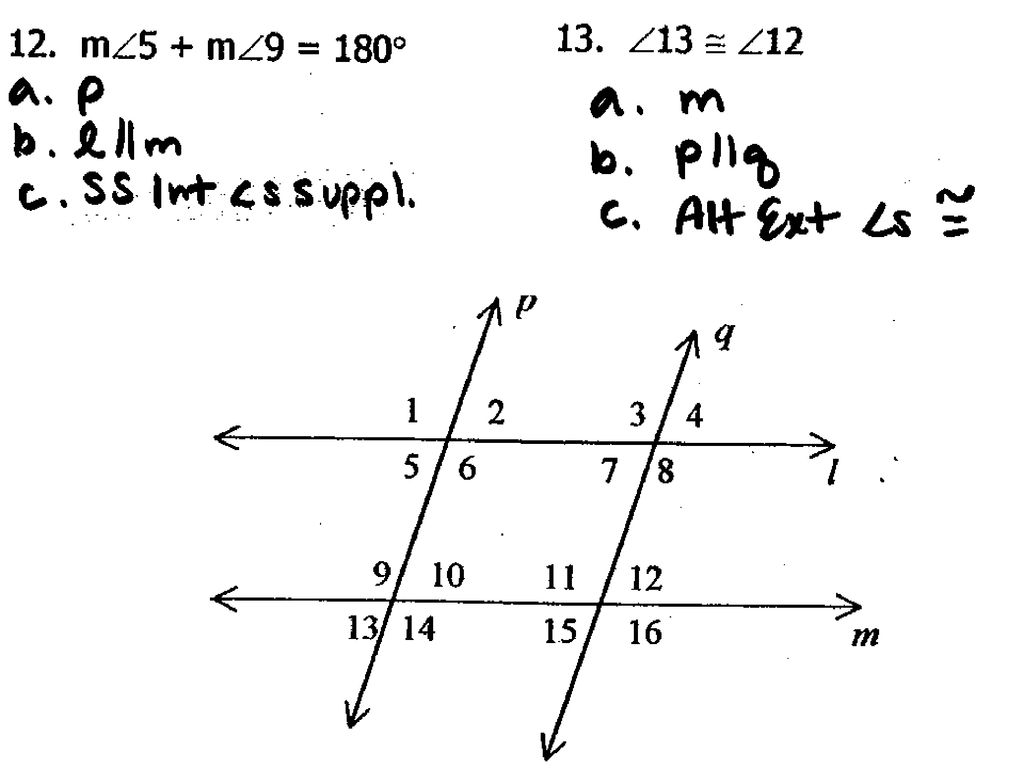 12. m∠5 + m∠9 = 180°
a. p
b. l || m
c. SS Int ∠s suppl.
13. ∠13 ≅ ∠12
a. m
b. p || q
c. Alt Ext ∠s ≅
p
q
1 2 3 4
5 6 7 8
l
9 10 11 12
13 14 15 16
m